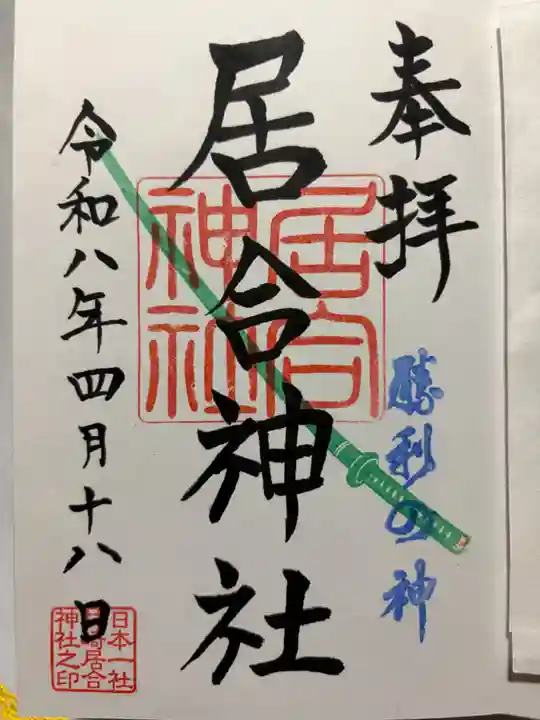 奉拝
勝利の神
居合神社
居合
神社
令和八年四月十八日
日本一社
居合
神社之印